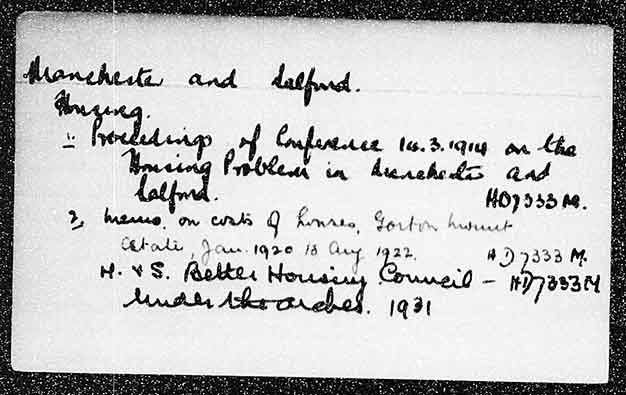 Manchester and Salford.
Housing.
1. Proceedings of Conference 14.3.1914 on the
Housing Problem in Manchester and
Salford. HD7333 M.
2. Memo. on costs of houses, Gorton Mount
Estate, Jan. 1920 to Aug 1922. HD7333 M.
M. & S. Better Housing Council - HD7333M
Under the arches. 1931